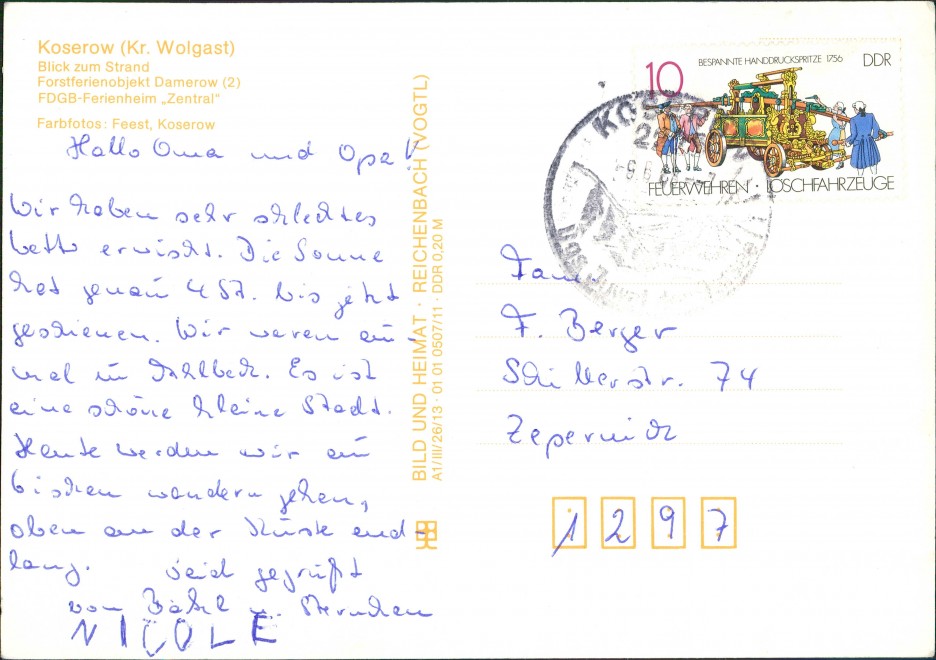 Koserow (Kr. Wolgast)
Blick zum Strand
Forstferienobjekt Damerow (2)
FDGB-Ferienheim „Zentral"
Farbfotos: Feest, Koserow
Hallo Oma und Opa!
Wir haben sehr schlechtes
Wetter erwischt. Die Sonne
hat genau 4 St. bis jetzt
geschienen. Wir waren ein-
mal in Ahlbeck. Es ist
eine schöne kleine Stadt.
Heute werden wir ein
bischen wandern gehen,
oben an der Küste end-
lang. Seid gegrüßt
von u. Sternchen
NICOLE
BILD UND HEIMAT · REICHENBACH (VOGTL)
A1/III/26/13 · 01 01 0507/11 · DDR 0,20 M
10
BESPANNTE HANDDRUCKSPRITZE 1756
DDR
FEUERWEHREN · LÖSCHFAHRZEUGE
Fam.
F. Berger
Schillerstr. 74
Zepernick
1297